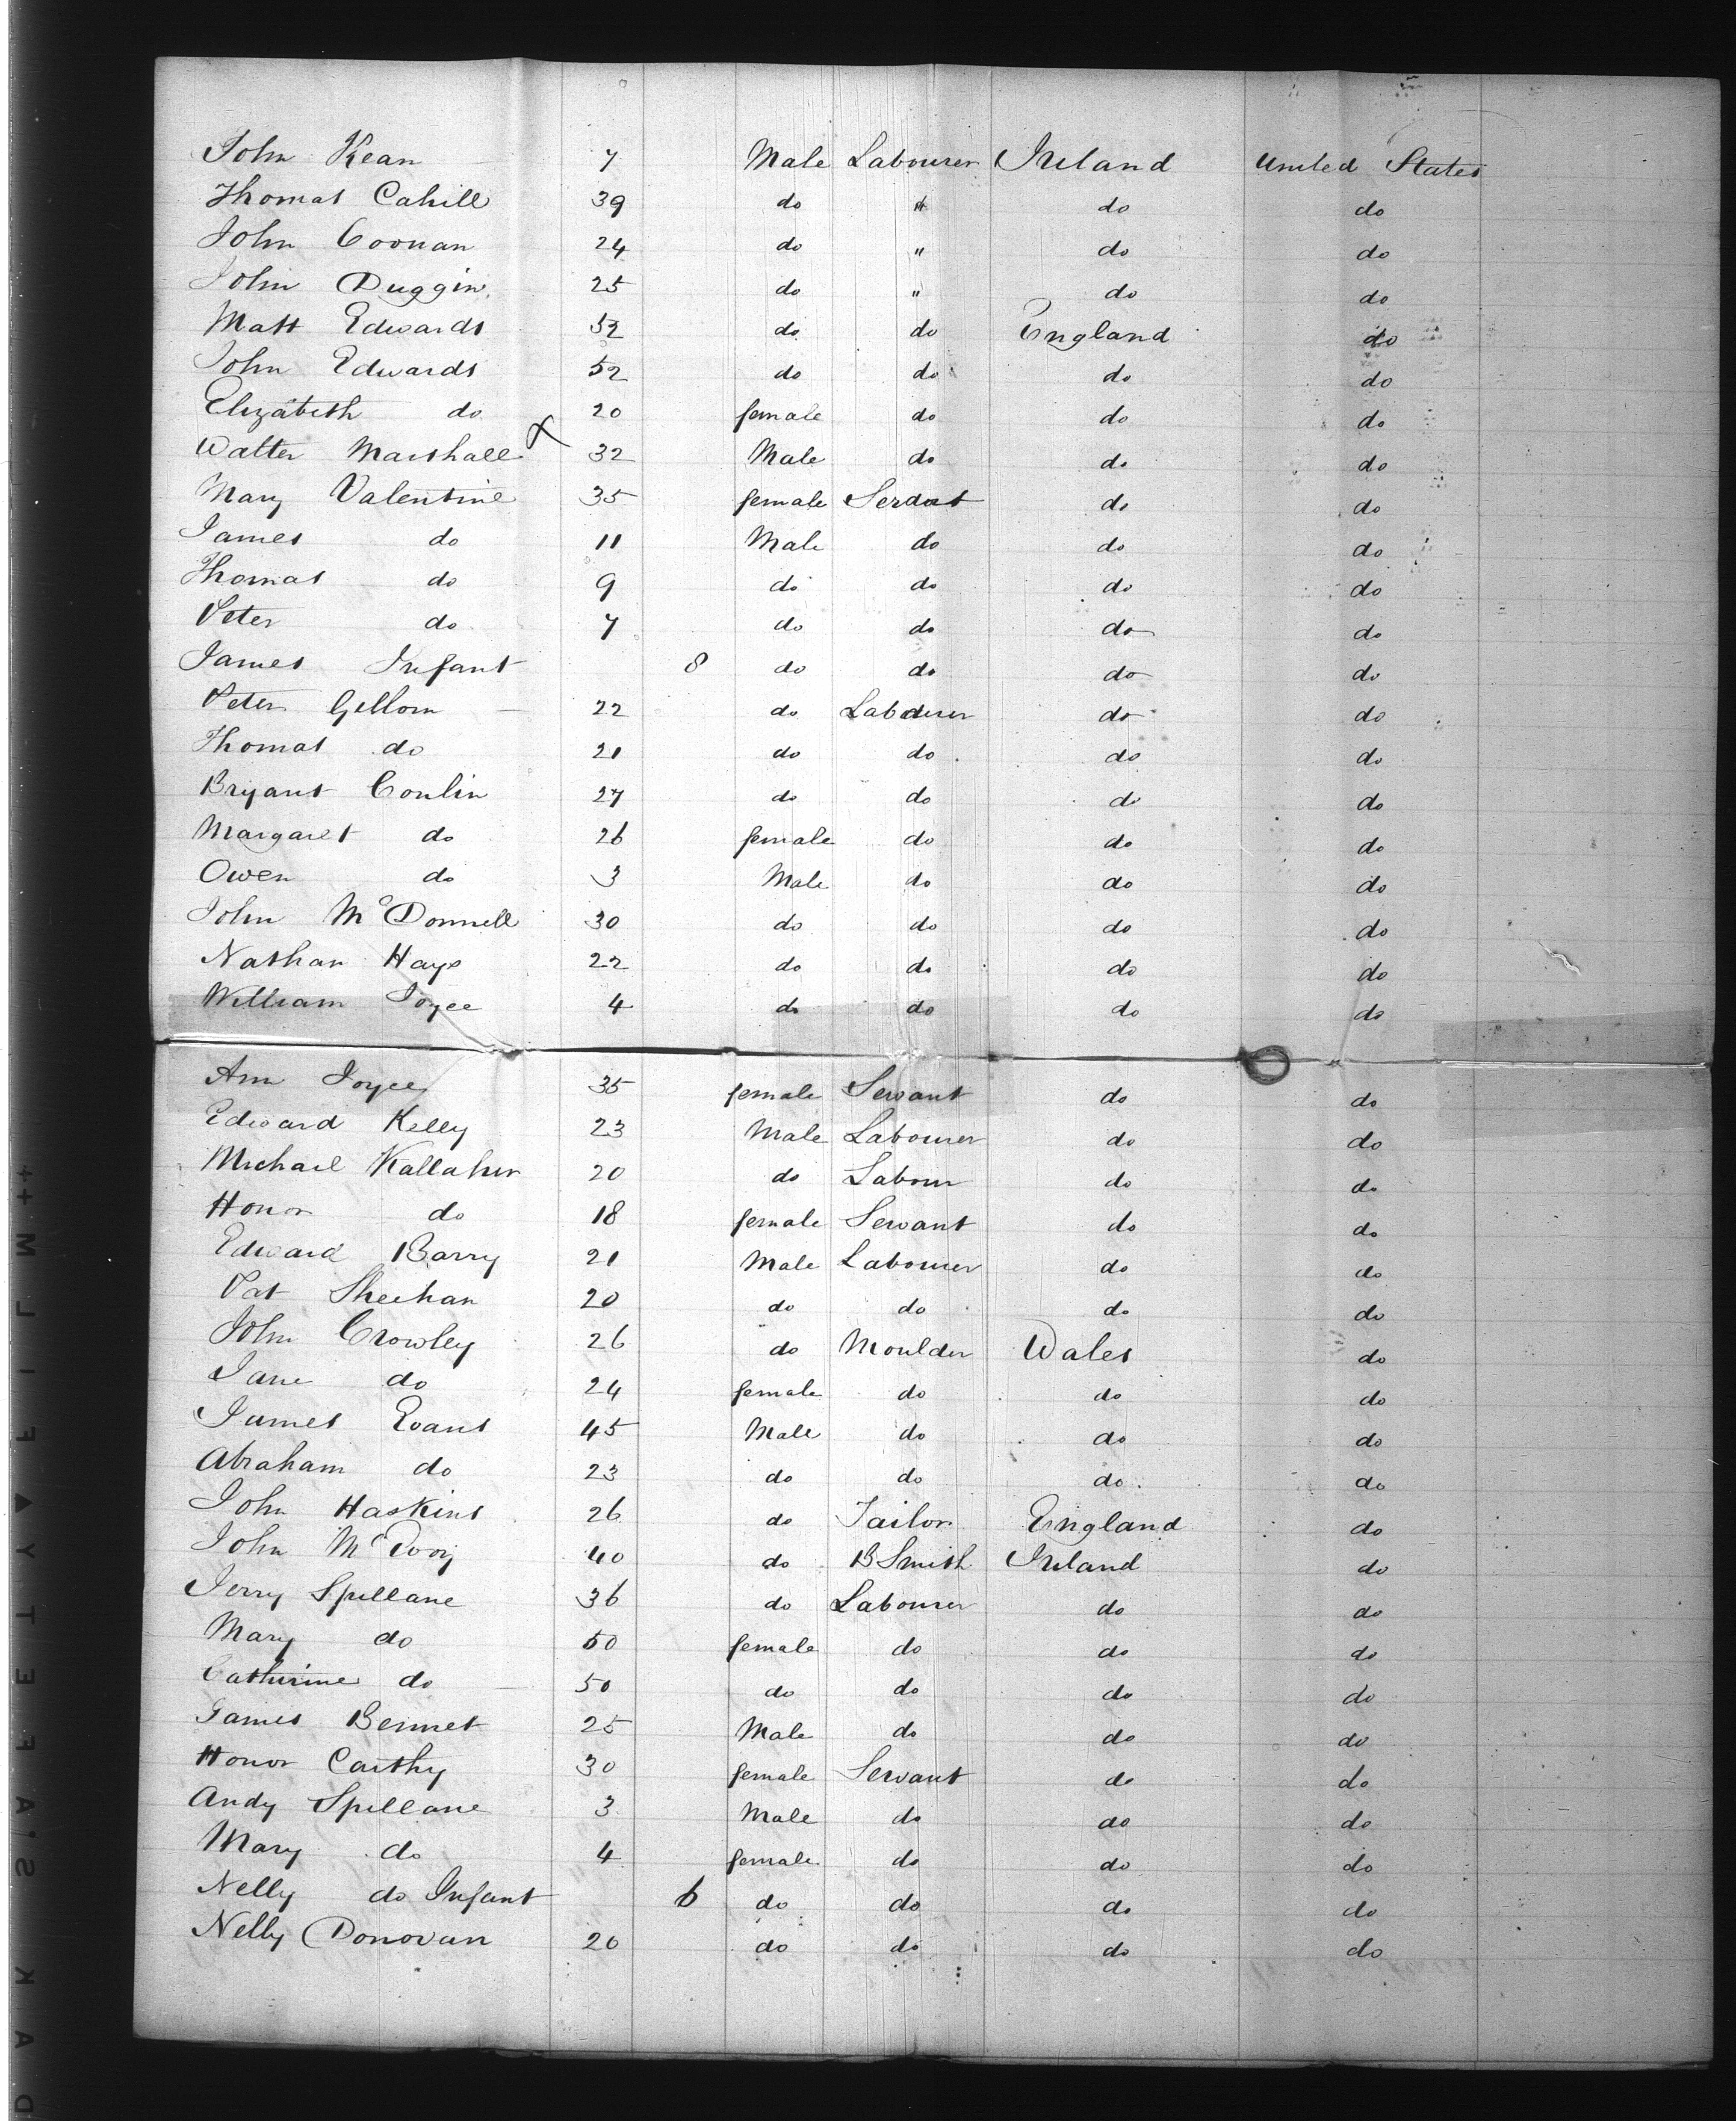 John Kean 7 Male Labourer Ireland United States
Thomas Cahill 39 do " do do
John Coonan 24 do " do do
John Duggin 25 do " do do
Matt Edwards 52 do do England do
John Edwards 52 do do do do
Elizabeth do 20 female do do do
Walter Marshall 32 Male do do do
Mary Valentine 35 female Servant do do
James do 11 Male do do do
Thomas do 9 do do do do
Peter do 7 do do do do
James Infant 8 do do do do
Peter Gellom 22 do Labourer do do
Thomas do 21 do do do do
Bryant Conlin 27 do do do do
Margaret do 26 female do do do
Owen do 3 Male do do do
John McDonnell 30 do do do do
Nathan Hays 22 do do do do
William Joyce 4 do do do do
Ann Joyce 35 female Servant do do
Edward Kelly 23 Male Labourer do do
Michael Kallaher 20 do Labour do do
Honor do 18 female Servant do do
Edward Barry 21 Male Labourer do do
Pat Sheehan 20 do do do do
John Crowley 26 do Moulder Wales do
Jane do 24 female do do do
James Evans 45 Male do do do
Abraham do 23 do do do do
John Haskins 26 do Tailor England do
John McEvoy 40 do B Smith Ireland do
Jerry Spillane 36 do Labourer do do
Mary do 50 female do do do
Catherine do 50 do do do do
James Bennet 25 Male do do do
Honor Carthy 30 female Servant do do
Andy Spillane 3 Male do do do
Mary do 4 female do do do
Nelly do Infant 6 do do do do
Nelly Donovan 20 do do do do